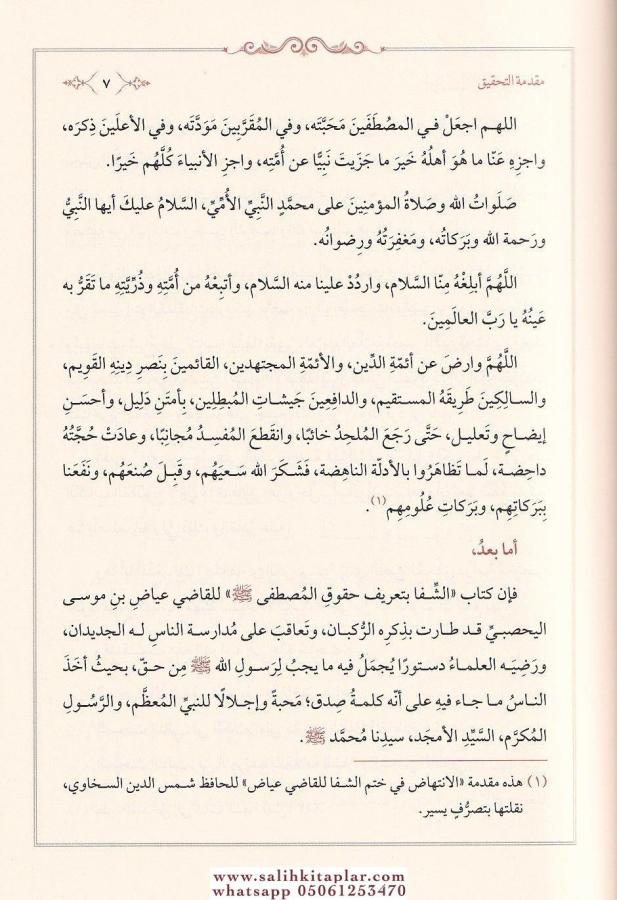 مقدمة التحقيق
٧
اللهم اجعَلْ في المصُطَفَينَ مَحَبَّتَه، وفي المُقَرَّبِينَ مَوَدَّتَه، وفي الأعلَينَ ذِكرَه،
واجزِهِ عَنّا ما هُوَ أهلُهُ خَيرَ ما جَزَيتَ نَبِيًّا عن أُمَّتِه، واجزِ الأنبياءَ كُلَّهُم خَيرًا.
صَلَواتُ الله وصَلاةُ المؤمنِينَ على محمَّدٍ النَّبِيِّ الأُمِّيِّ، السَّلامُ عليكَ أيها النَّبِيُّ
ورَحمة الله وبَرَكاتُه، ومَغفِرَتُهُ ورِضوانُه.
اللَّهُمَّ أبلِغْهُ مِنّا السَّلام، واردُدْ علينا منه السَّلام، وأتبِعْهُ من أُمَّتِهِ وذُرِّيَّتِهِ ما تَقَرُّ به
عَينُهُ يا رَبَّ العالَمِينَ.
اللَّهُمَّ وارضَ عن أئمّةِ الدِّين، والأئمّةِ المجتهدين، القائمينَ بِنَصرِ دِينِهِ القَويم،
والسـالِكِينَ طَرِيقَهُ المسـتقيم، والدافِعِينَ جَيشاتِ المُبطِلِين، بِأمتَنِ دَلِيل، وأحسَـنِ
إيضـاحٍ وتَعليـل، حَتَّى رَجَعَ المُلحِدُ خائبًا، وانقَطعَ المُفسِـدُ مُجانِبًا، وعادَتْ حُجَّتُهُ
داحِضـة، لَمـا تَظاهَرُوا بالأدلّة الناهِضـة، فَشَـكَرَ الله سَـعيَهُم، وقَبِـلَ صُنعَهُم، ونَفَعَنا
بِبَرَكاتِهِم، وبَرَكاتِ عُلُومِهِم(١).
أما بعدُ،
فإن كتاب «الشِّفا بتعريف حقوقِ المُصطفى ﷺ» للقاضي عياضِ بنِ موسى
اليحصبيِّ قد طارت بذِكرِه الرُّكبان، وتَعاقبَ على مُدارسةِ الناسِ لـه الجديدان،
ورَضِيَـه العلمـاءُ دسـتورًا يُجمَلُ فيه ما يجبُ لِرَسولِ الله ﷺ مِن حـقّ، بحيثُ أخَذَ
الناسُ ما جـاء فيهِ على أنّه كلمةُ صِدق؛ مَحبةً وإجلالًا للنبيِّ المُعظَّم، والرَّسُولِ
المُكرَّم، السَّيِّدِ الأمجَد، سيدِنا مُحمَّد ﷺ.
(١) هذه مقدمة «الانتهاض في ختم الشفا للقاضي عياض» للحافظ شمس الدين السخاوي،
نقلتها بتصرُّفٍ يسير.
www.salihkitaplar.com
whatsapp 05061253470